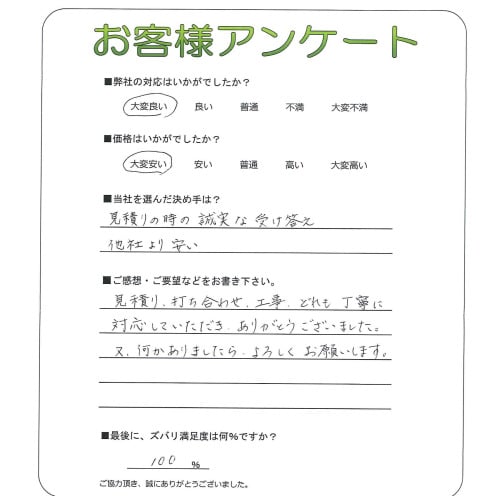 お客様アンケート
■弊社の対応はいかがでしたか？
大変良い 良い 普通 不満 大変不満
■価格はいかがでしたか？
大変安い 安い 普通 高い 大変高い
■当社を選んだ決め手は？
見積りの時の誠実な受け答え
他社より安い
■ご感想・ご要望などをお書き下さい。
見積り、打ち合わせ、工事、どれも丁寧に
対応していただき、ありがとうございました。
又、何かありましたら、よろしくお願いします。
■最後に、ズバリ満足度は何%ですか？
100 %
ご協力頂き、誠にありがとうございました。